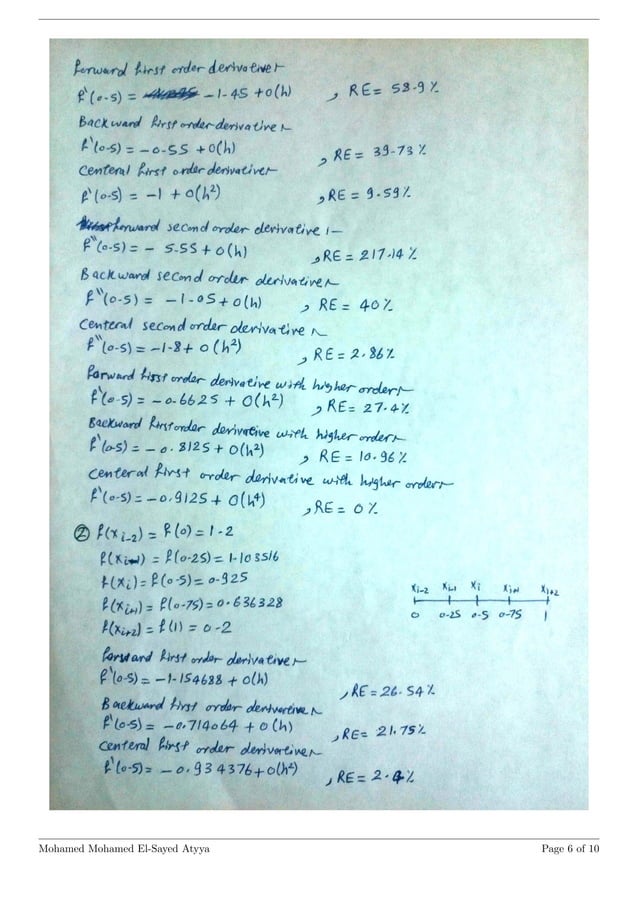 forward first order derivative:-
f'(0.5) = -1.45 + O(h) , RE = 58.9 %
Backward first order derivative:-
f'(0.5) = -0.55 + O(h) , RE = 39.73 %
Centeral first order derivative:-
f'(0.5) = -1 + O(h²) , RE = 9.59 %
forward second order derivative :-
f''(0.5) = - 5.55 + O(h) , RE = 217.14 %
Backward second order derivative:-
f''(0.5) = -1.05 + O(h) , RE = 40 %
Centeral second order derivative :-
f''(0.5) = -1.8 + O(h²) , RE = 2.86 %
forward first order derivative with higher order:-
f'(0.5) = -0.6625 + O(h²) , RE = 27.4 %
Backward first order derivative with higher order:-
f'(0.5) = -0.8125 + O(h²) , RE = 10.96 %
Centeral first order derivative with higher order:-
f'(0.5) = -0.9125 + O(h⁴) , RE = 0 %
② f(x i-2) = f(0) = 1.2
f(x i-1) = f(0.25) = 1.103516
f(xi) = f(0.5) = 0.925
f(x i+1) = f(0.75) = 0.636328
f(x i+2) = f(1) = 0.2
x i-2 x i-1 xi x i+1 x i+2
0 0.25 0.5 0.75 1
forward first order derivative:-
f'(0.5) = -1.154688 + O(h) , RE = 26.54 %
Backward first order derivative:-
f'(0.5) = -0.714064 + O(h) , RE = 21.75 %
Centeral first order derivative:-
f'(0.5) = -0.934376 + O(h²) , RE = 2.4 %
Mohamed Mohamed El-Sayed Atyya Page 6 of 10